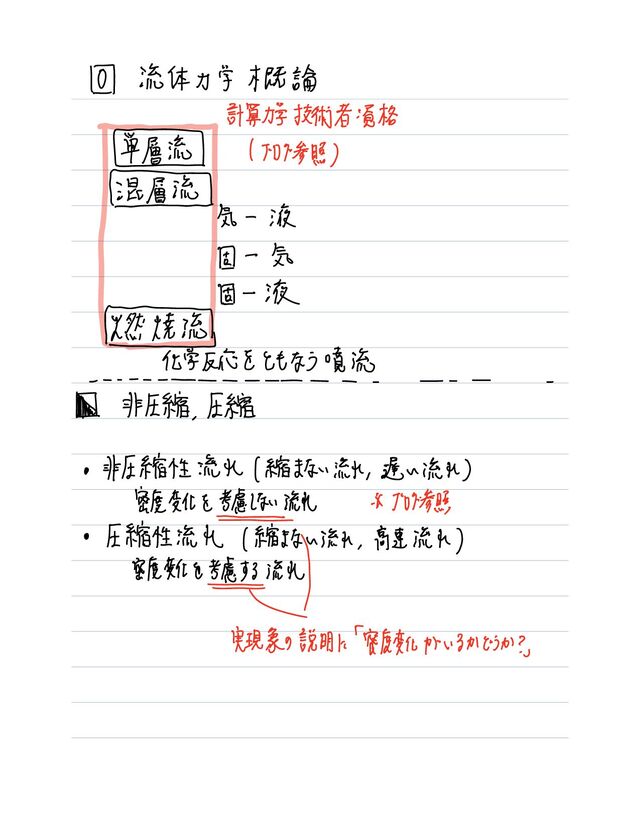 0 流体力学概論
計算力学技術者資格
(ブログ参照)
単層流
混層流
気ー液
固ー気
固ー液
燃焼流
化学反応をともなう噴流
非圧縮, 圧縮
・非圧縮性流れ (縮まない流れ, 遅い流れ)
密度変化を考慮しない流れ ※ブログ参照
・圧縮性流れ (縮まない流れ, 高速流れ)
密度変化を考慮する流れ
実現象の説明に「密度変化がいるかどうか?」